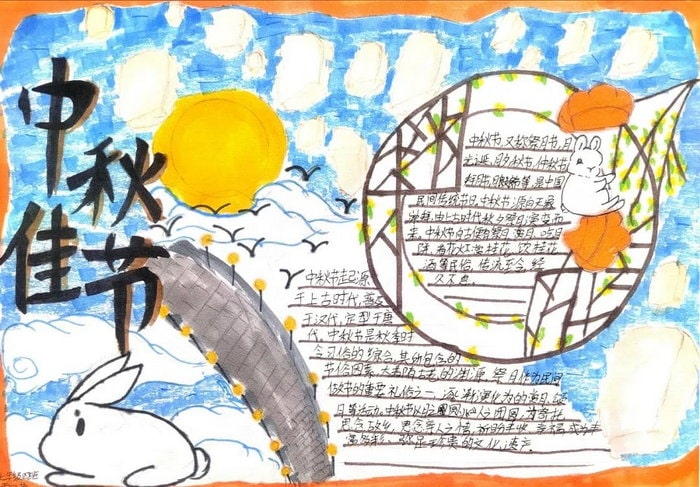 中秋
佳节
中秋节,又称祭月节,月
光诞、月夕、秋节、仲秋节
拜月节、等,是中国
民间传统节日。中秋节源自天象
崇拜,由上古时代秋夕祭月演变而
来。中秋节自古便有祭月、赏月、吃月
饼、看花灯、赏桂花、饮桂花
酒等民俗,流传至今,经
久不息。
中秋节起源
于上古时代,普及
于汉代,定型于唐
代。中秋节是秋季时
令习俗的综合,其所包含的
节俗因素,大都有古老的渊源。祭月作为民间
过节的重要礼俗之一,逐渐演化为的赏月、颂
月等活动。中秋节以月之圆兆人之团圆,为寄托
思念故乡,思念亲人之情,祈盼丰收、幸福,成为丰
富多彩、弥足珍贵的文化遗产。